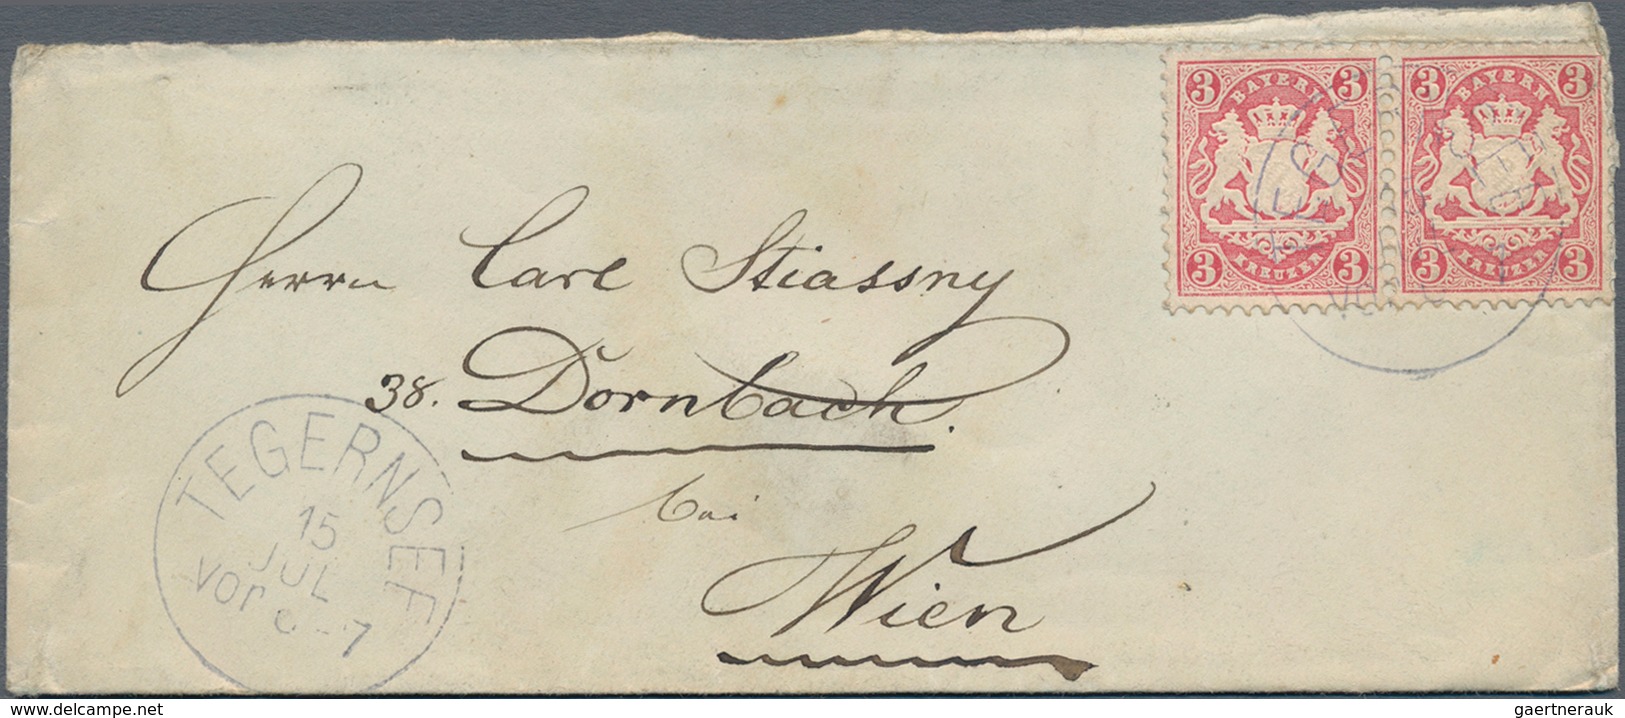 3 BAYERN 3 3 BAYERN 3
3 KREUZER 3 3 KREUZER 3
Herrn Carl Stiassny
38. Dornbach.
bei
Wien
TEGERNSEE
15
JUL
Vor 6-7
delcampe.net
gaertnerauk